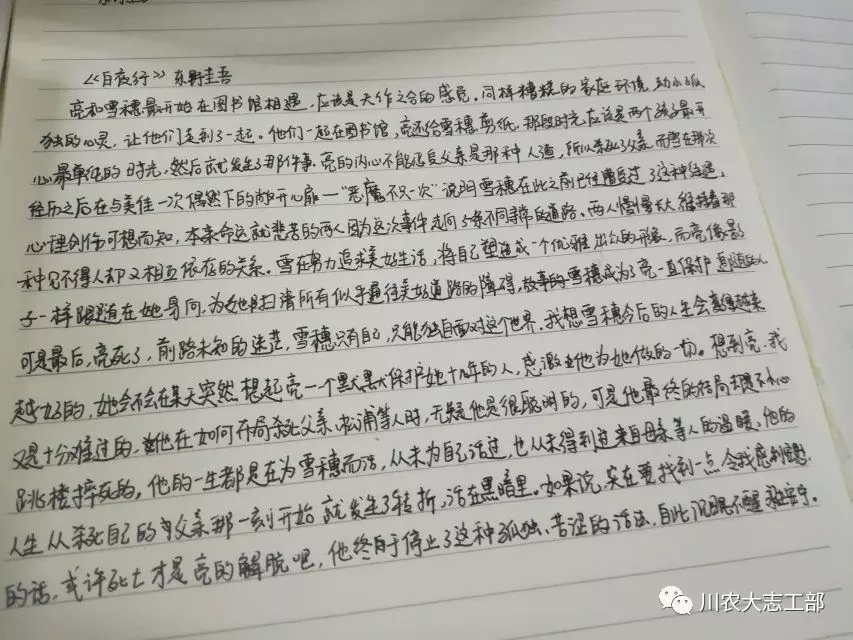 《白夜行》东野圭吾
亮和雪穗最开始在图书馆相遇，应该是天作之合的感觉。同样糟糕的家庭环境，幼小孤
独的心灵，让他们走到了一起。他们一起在图书馆，亮还给雪穗剪纸，那段时光，应该是两个孩子最开
心最单纯的时光，然后就发生了那件事。亮的内心不能接受父亲是那种人渣，所以杀死了父亲，而雪在那次
经历之后在与美佳一次偶然下的敞开心扉—"恶魔不只一次"说明雪穗在此之前已经遭受过了这种待遇，
心理创伤可想而知，本来命运就悲苦的两人因为这次事件走向了条不同寻常的道路。两人慢慢长大，维持着那
种见不得人却又相互依存的关系。雪在努力追求美好生活，将自己塑造成一个优雅出众的形象，而亮像影
子一样跟随在她身旁，为她扫清所有似乎通往美好道路的障碍，雪穗成为了亮一直保护追随的人
可是最后，亮死了，前路未知的迷茫，雪穗只有自己，只能独自面对这个世界。我想雪穗今后的人生会越来
越好的，她会不会在某天突然想起亮一个默默保护她十几年的人，感激他为她做的一切。想到亮，我
又是十分难过的，他在如何布局杀死父亲、松浦等人时，无疑他是很聪明的，可是他最终的结局却是不小心
跳楼摔死的，他的一生都是在为雪穗而活，从未为自己活过，也从未得到过来自母亲等人的温暖，他的
人生从杀死自己的父亲那一刻开始就发生了转折，活在黑暗里。如果说，实在要找到一点令我感到
的话，或许死亡才是亮的解脱吧，他终于停止了这种孤独、苦涩的活法，自此沉眠不醒
川农大志工部